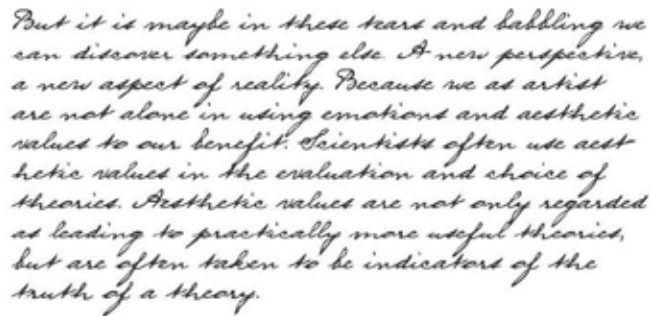 But it is maybe in these tears and babbling we
can discover something else. A new perspective,
a new aspect of reality. Because we as artist
are not alone in using emotions and aesthetic
values to our benefit. Scientists often use aest
hetic values in the evaluation and choice of
theories. Aesthetic values are not only regarded
as leading to practically more useful theories,
but are often taken to be indicators of the
truth of a theory.